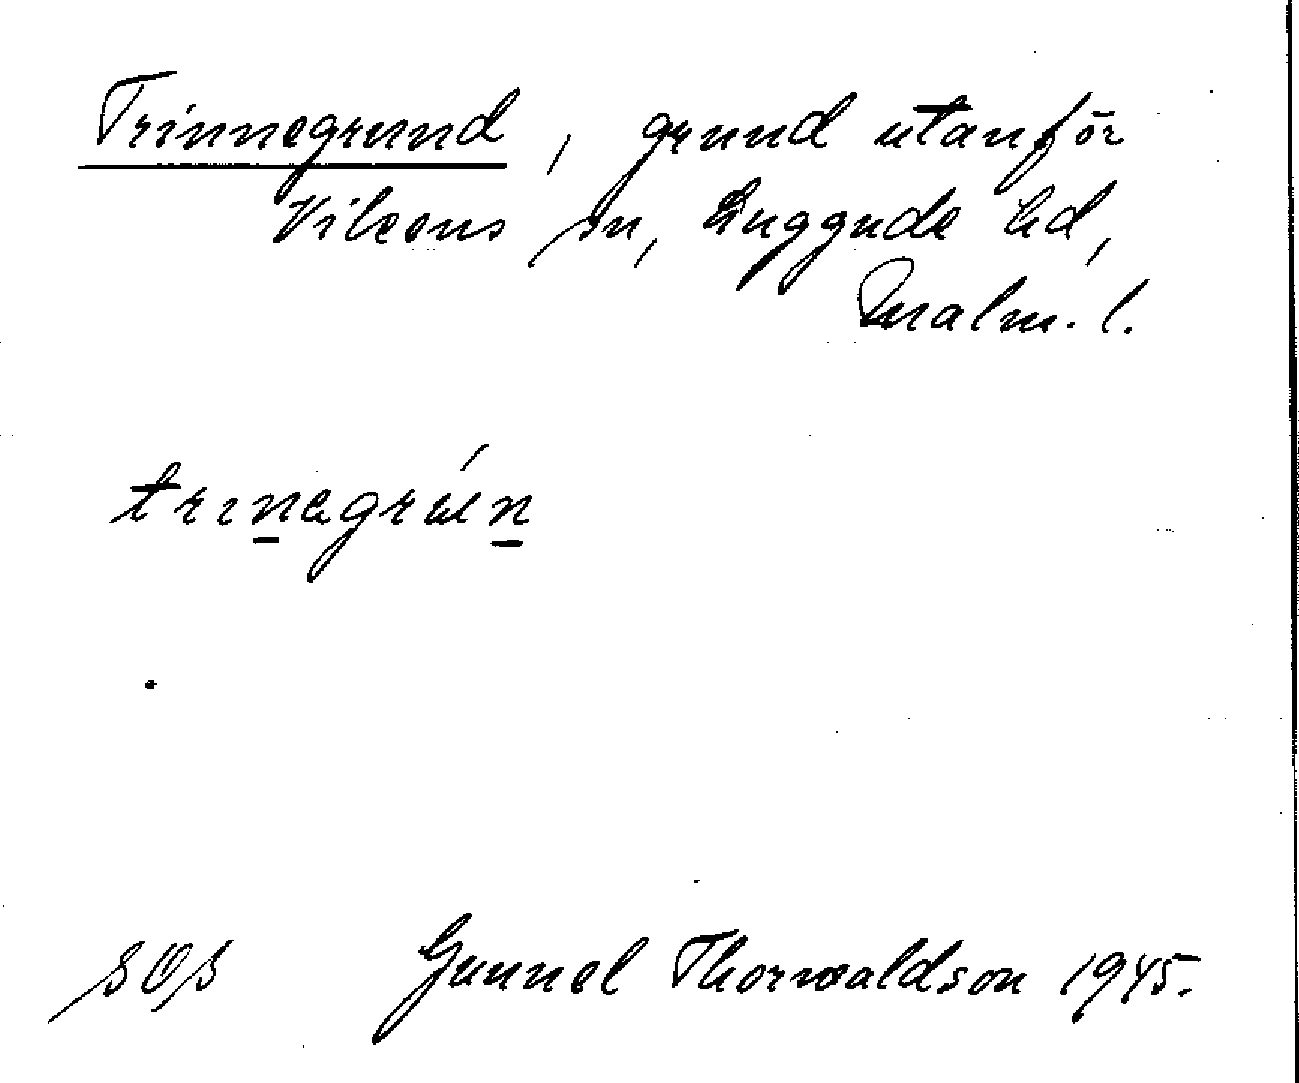 Trinnegrund, grund utanför
Vikens sn, Luggude hd,
Malm. l.
trınegrún
SOS Gunnel Thorwaldson 1945.